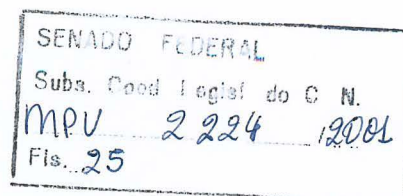 SENADO FEDERAL
Subs. Coord Legisl do C N.
MPV 2 224 /2001
Fls. 25